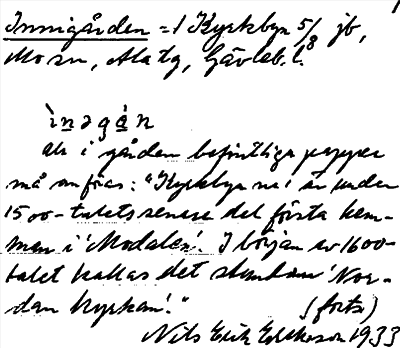 Innigården = 1 Kyrkbyn 5/8 jb,
Mo sn, Ala tg, Gävleb. l.
ìnəgá̀n
Ur i gården befintliga papper
må anföras: "Kyrkbyn no 1 är under
1500-talets senare del första hem-
man i 'Modalen'. I början av 1600-
talet kallas det stundom 'Nor-
dan Kyrkan'."
(forts)
Nils Erik Eriksson 1933